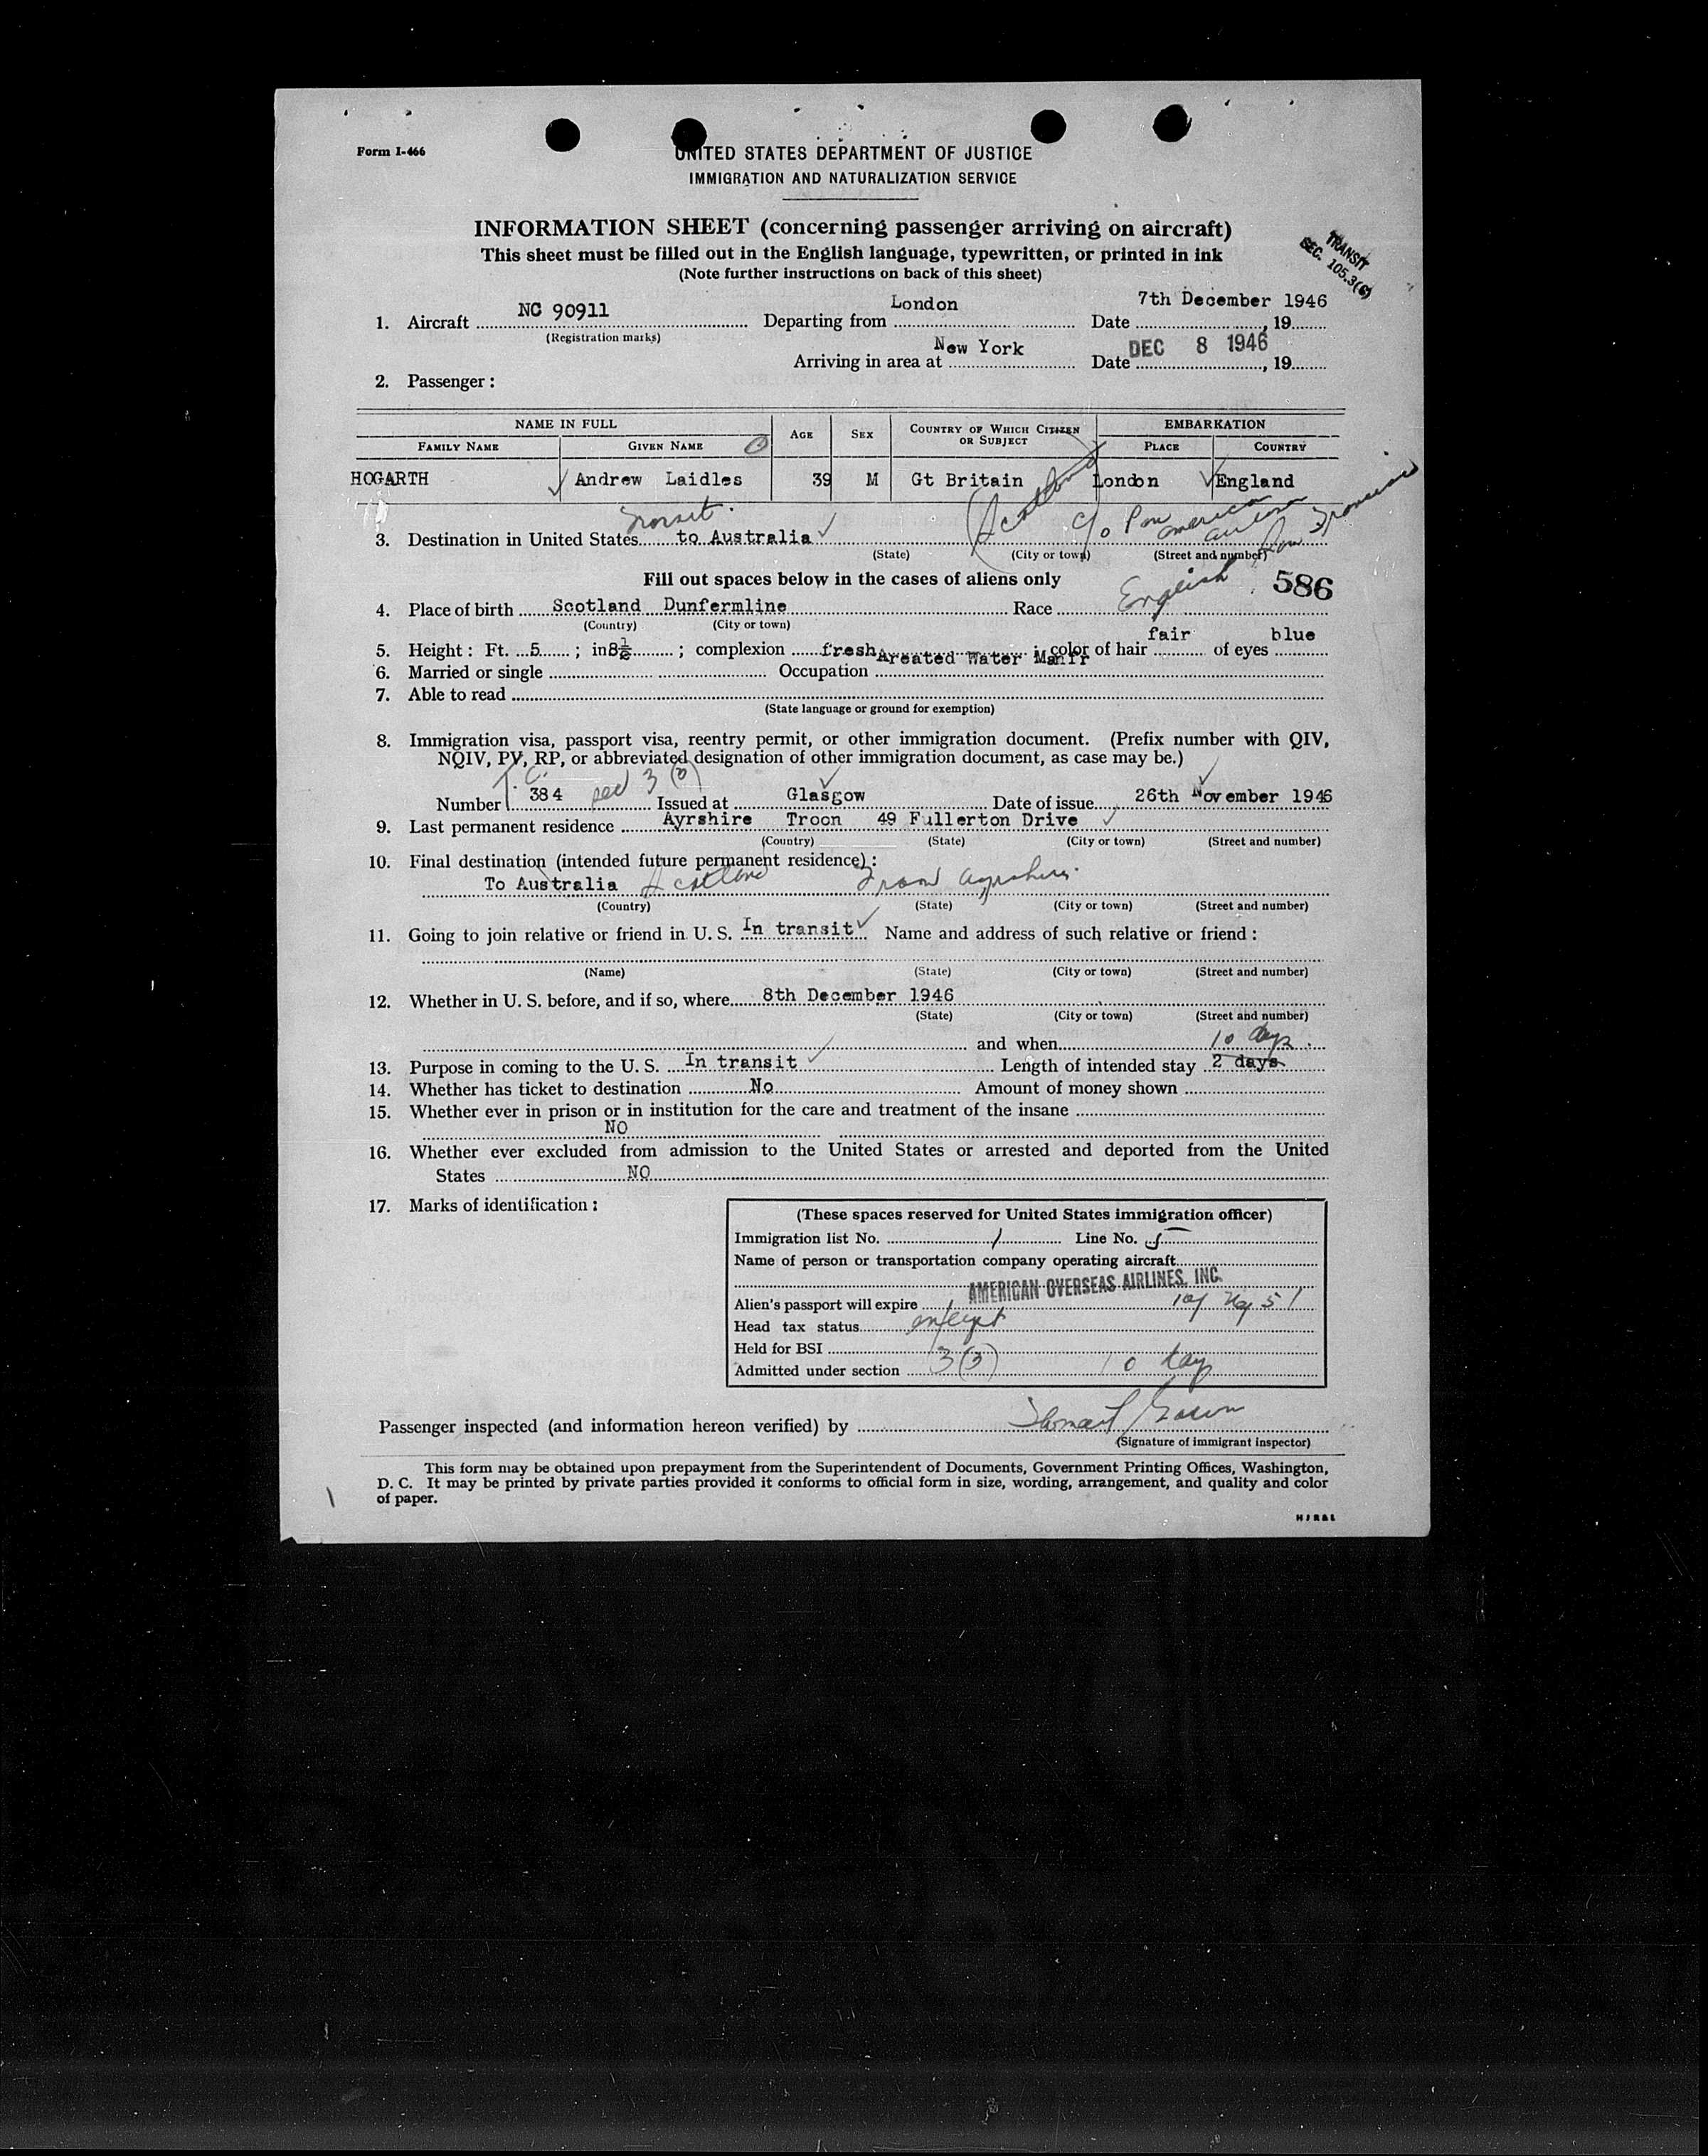 Form I-466
UNITED STATES DEPARTMENT OF JUSTICE
IMMIGRATION AND NATURALIZATION SERVICE
INFORMATION SHEET (concerning passenger arriving on aircraft)
This sheet must be filled out in the English language, typewritten, or printed in ink
(Note further instructions on back of this sheet)
TRANSIT
SEC. 105.3(C)
1. Aircraft NC 90911 Departing from London Date 7th December 1946, 19
(Registration marks)
Arriving in area at New York Date DEC 8 1946, 19
2. Passenger:
NAME IN FULL AGE SEX COUNTRY OF WHICH CITIZEN OR SUBJECT EMBARKATION
FAMILY NAME GIVEN NAME PLACE COUNTRY
HOGARTH Andrew Laidles 39 M Gt Britain London England
(Scotland)
Transit
3. Destination in United States to Australia c/o Pan American Airlines San Francisco
(State) (City or town) (Street and number)
Fill out spaces below in the cases of aliens only
586
4. Place of birth Scotland Dunfermline Race English
(Country) (City or town)
5. Height: Ft. 5; in 8½; complexion fresh; color of hair fair of eyes blue
6. Married or single Occupation Areated Water Manfr
7. Able to read
(State language or ground for exemption)
8. Immigration visa, passport visa, reentry permit, or other immigration document. (Prefix number with QIV,
NQIV, PV, RP, or abbreviated designation of other immigration document, as case may be.)
Number T.C. 384 sec 3 (3) Issued at Glasgow Date of issue 26th November 1946
9. Last permanent residence Ayrshire Troon 49 Fullerton Drive
(Country) (State) (City or town) (Street and number)
10. Final destination (intended future permanent residence):
To Australia Scotland Troon Ayrshire
(Country) (State) (City or town) (Street and number)
11. Going to join relative or friend in U. S. In transit Name and address of such relative or friend:
(Name) (State) (City or town) (Street and number)
12. Whether in U. S. before, and if so, where 8th December 1946
(State) (City or town) (Street and number)
and when 10 days
13. Purpose in coming to the U. S. In transit Length of intended stay 2 days
14. Whether has ticket to destination No Amount of money shown
15. Whether ever in prison or in institution for the care and treatment of the insane
NO
16. Whether ever excluded from admission to the United States or arrested and deported from the United
States NO
17. Marks of identification:
(These spaces reserved for United States immigration officer)
Immigration list No. 1 Line No. 5
Name of person or transportation company operating aircraft
AMERICAN OVERSEAS AIRLINES, INC.
Alien's passport will expire 51
Head tax status exempt
Held for BSI
Admitted under section 3(3) 10 days
Passenger inspected (and information hereon verified) by
(Signature of immigrant inspector)
This form may be obtained upon prepayment from the Superintendent of Documents, Government Printing Offices, Washington,
D. C. It may be printed by private parties provided it conforms to official form in size, wording, arrangement, and quality and color
of paper.